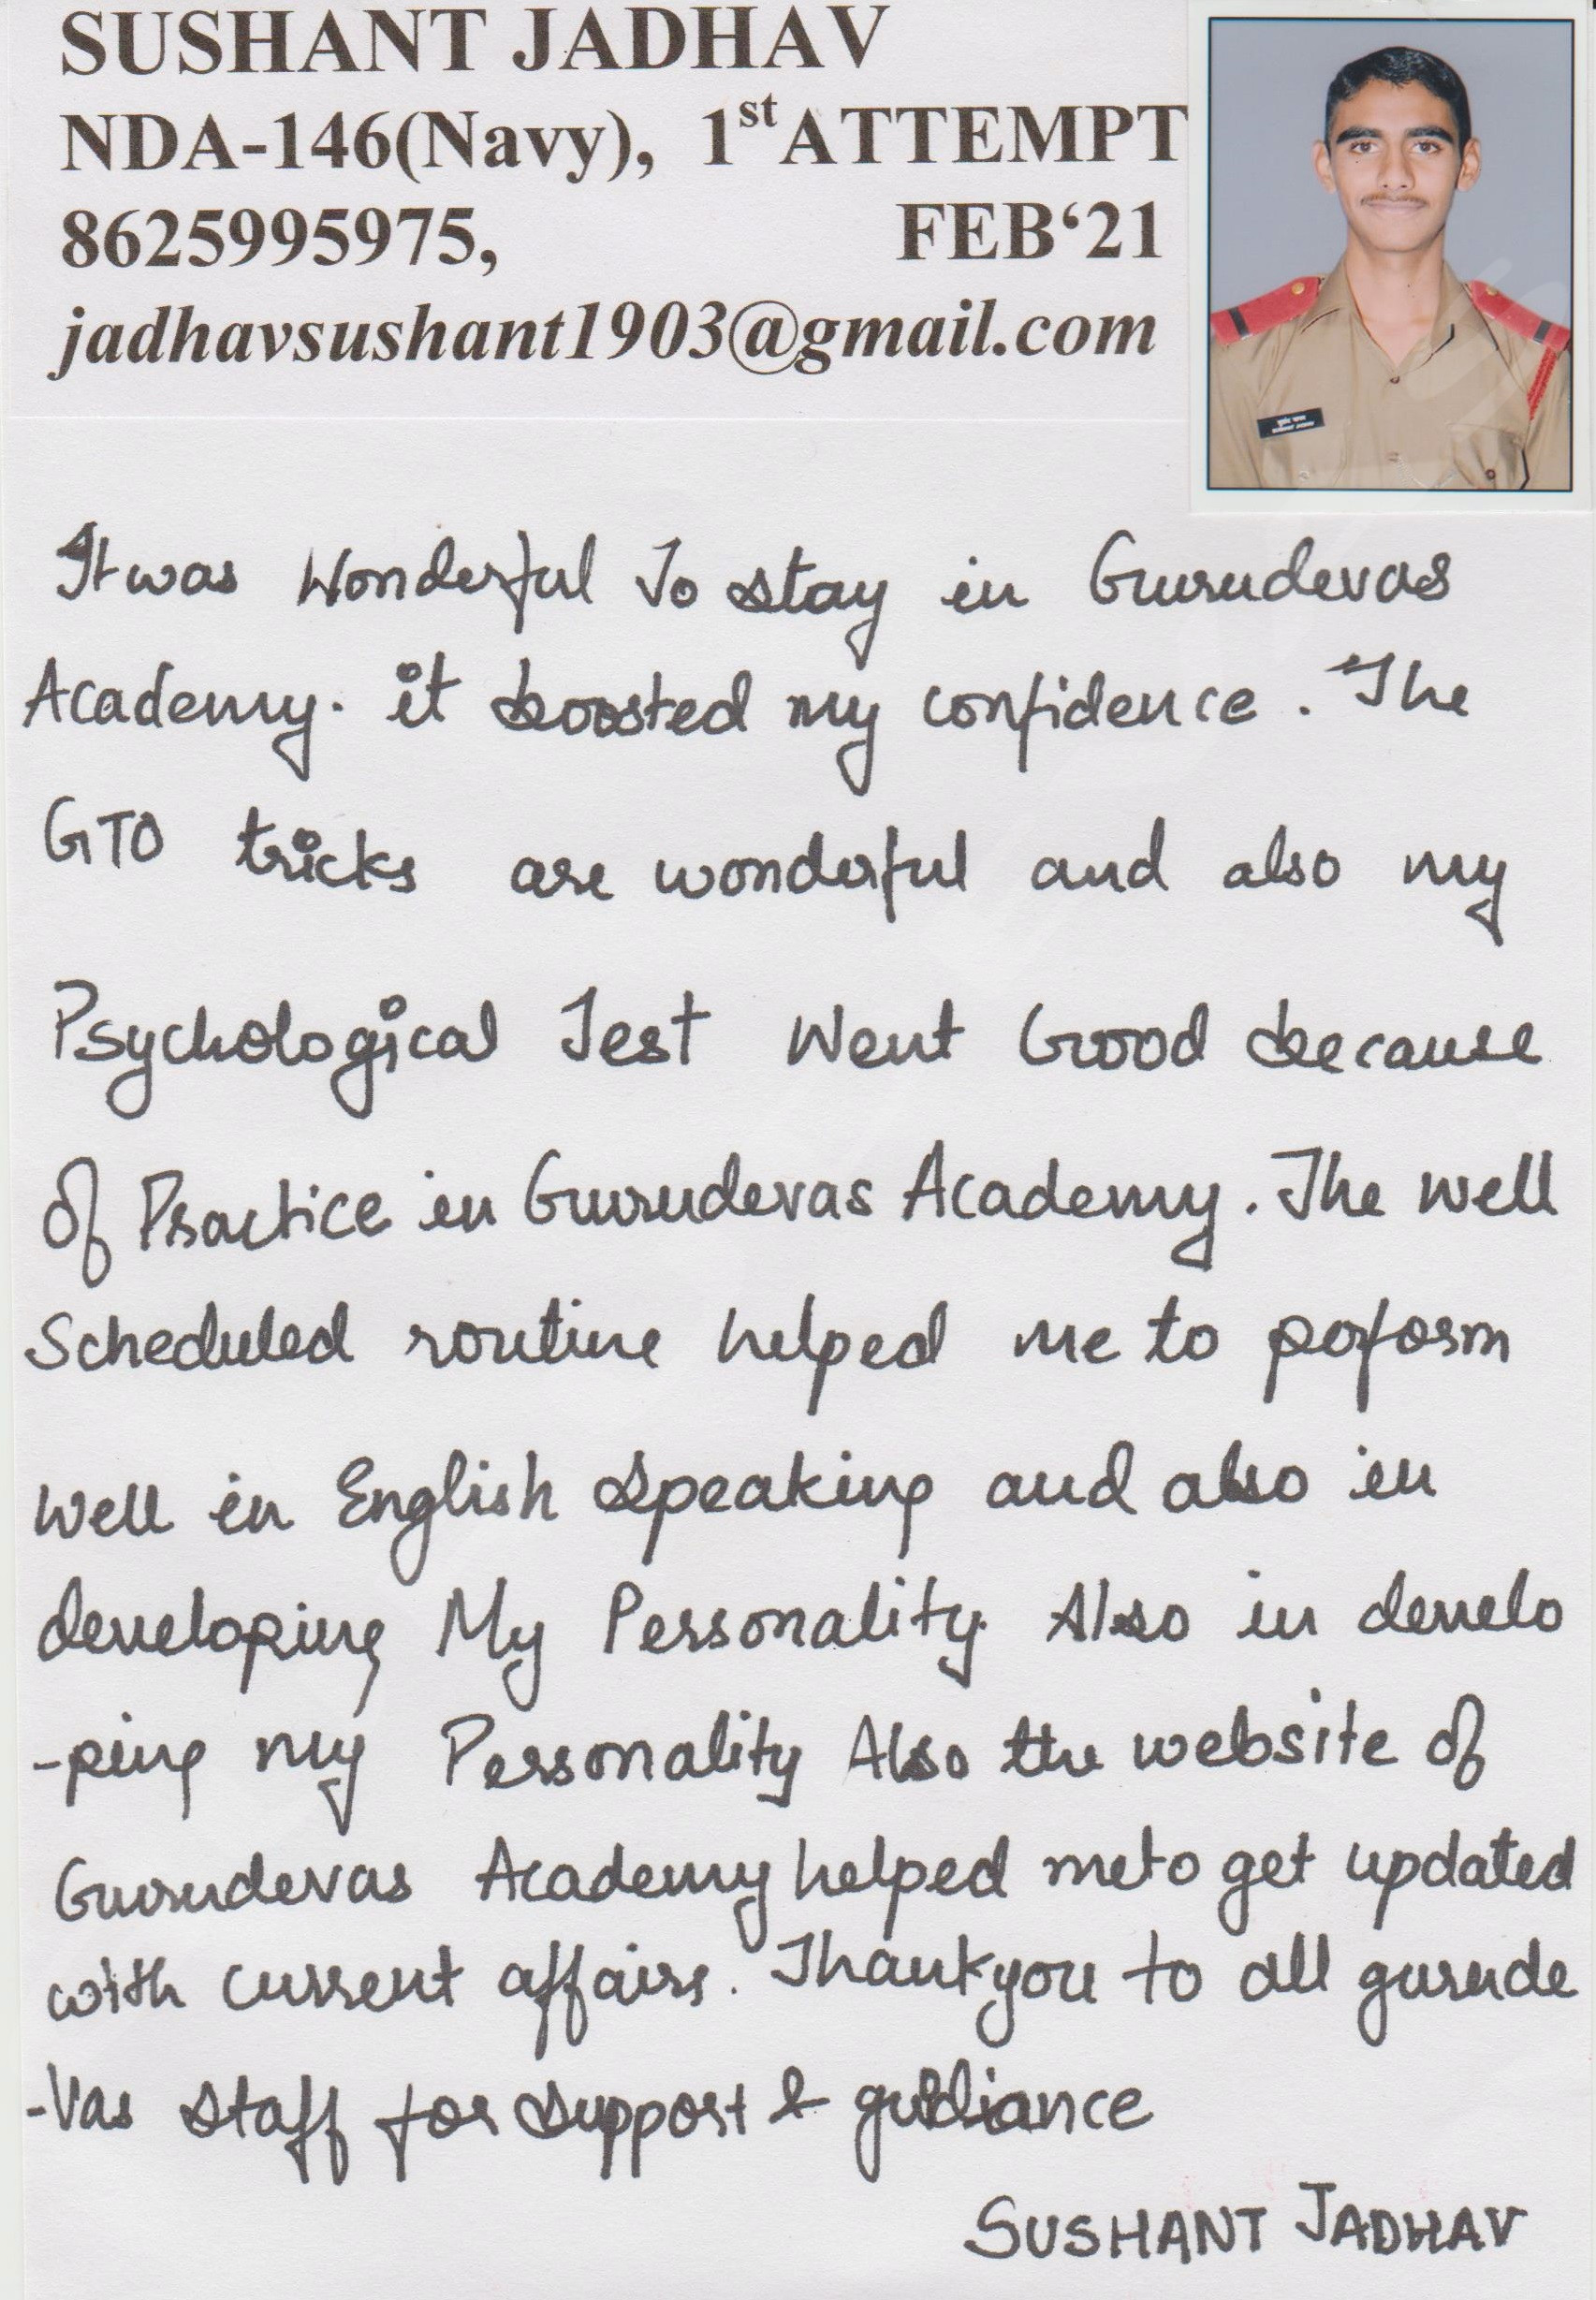 SUSHANT JADHAV
NDA-146(Navy), 1st ATTEMPT
8625995975, FEB‘21
jadhavsushant1903@gmail.com
It was Wonderful To stay in Gurudevas
Academy. it boosted my confidence. The
GTO tricks are wonderful and also my
Psychological Test Went Good because
Of Practice in Gurudevas Academy. The well
Scheduled routine helped me to perform
well in English speaking and also in
developing My Personality. Also in develo
-ping my Personality Also the website of
Gurudevas Academy helped me to get updated
with current affairs. Thank you to all gurude
-Vas staff for support & guidiance
SUSHANT JADHAV